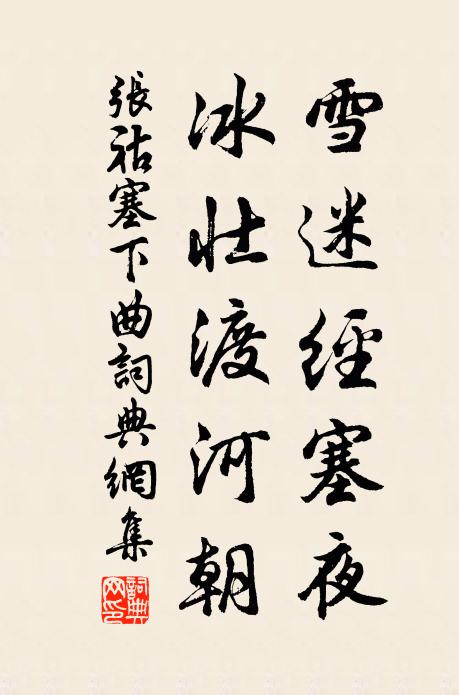 雪迷經塞夜
冰壯渡河朝
張祜塞下曲詞典網集
詞典网印